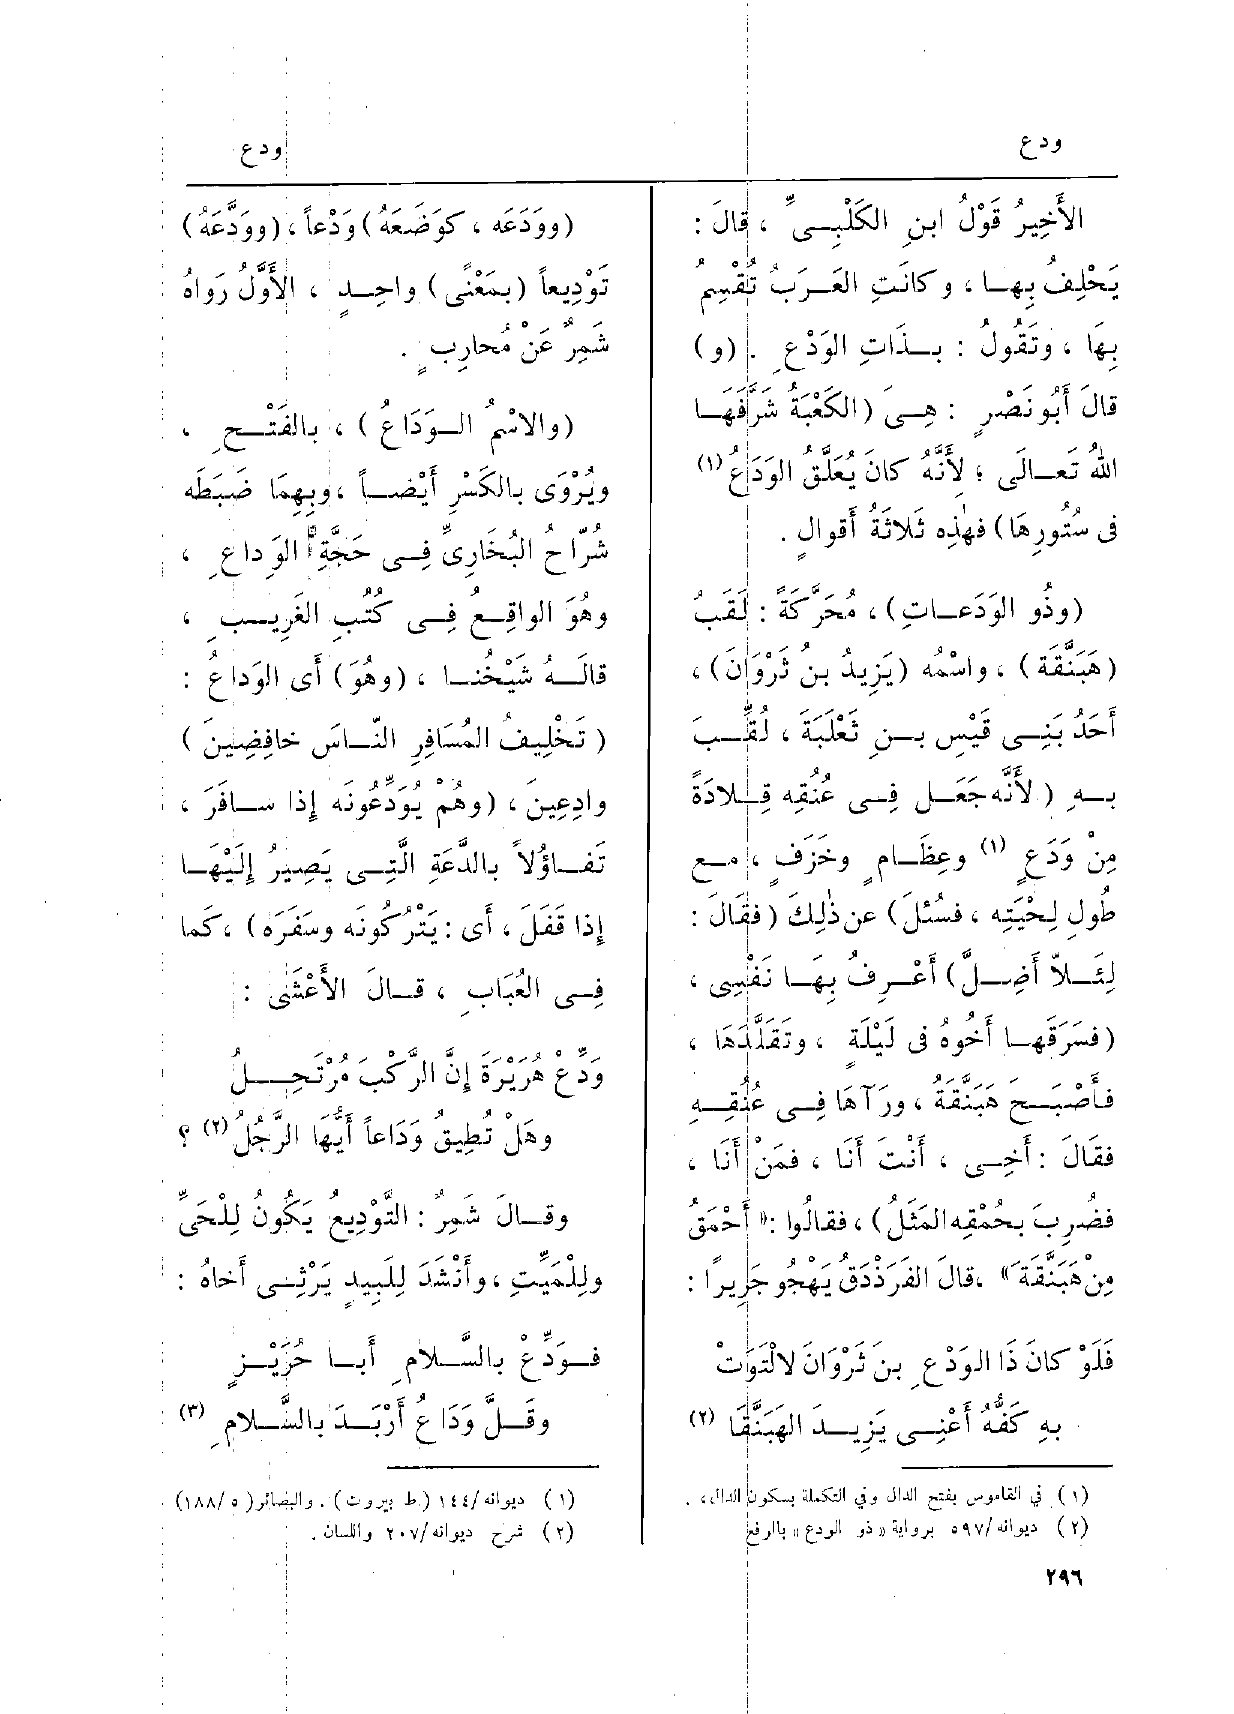 ودع
ودع
الأَخِيرُ قَوْلُ ابنِ الكَلْبِىِّ ، قالَ :
يَحْلِفُ بِها ، وكانَتِ العَرَبُ تُقْسِمُ
بِهَا ، وتَقُولُ : بذَاتِ الوَدْعِ . (و)
قالَ أَبُو نَصْرٍ : هِىَ (الكَعْبَةُ شَرَّفَهَا
اللهُ تَعَالَى ؛ لِأَنَّهُ كانَ يُعَلَّق الوَدَاعُ(١)
فى سُتُورِهَا) فهٰذِه ثَلاثَةُ أَقوالٍ .
(وذُو الوَدَعاتِ) ، مُحَرَّكَةً : لَقَبُ
(هَبَنَّقَة) ، واسْمُه (يَزِيدُ بنُ ثَرْوَانَ) ،
أَحَدُ بَنِى قَيْسِ بنِ ثَعْلَبَةَ ، لُقِّبَ
بهِ ( لأَنَّه جَعَل فِى عُنُقِه قِلادَةً
مِنْ وَدَعٍ (١) وعِظَامٍ وخَزَفٍ ، مع
طُولِ لِحْيَتِه ، فسُئلَ) عن ذٰلِكَ (فقَالَ :
لِئَلاَّ أَضِلَّ) أَعْرِفُ بِهَا نَفْسِى ،
(فسَرَقَها أَخُوهُ فى لَيْلَةٍ ، وتَقَلَّدَهَا ،
فأَصْبَحَ هَبَنَّقَةُ ، ورَآهَا فِى عُنُقِهِ
فقَالَ : أَخِى ، أَنْتَ أَنَا ، فمَنْ أَنَا ،
فضُرِبَ بحُمْقِه المَثَلُ) ، فقالُوا : «أَحْمَقُ
مِنْ هَبَنَّقَةَ» ، قالَ الفَرَزْدَقُ يَهْجُو جَرِيرًا :
فَلَوْ كانَ ذَا الوَدْعِ بنَ ثَرْوَانَ لالْتَوَتْ
بهِ كَفُّهُ أَعْنِى يَزِيدَ الهَبَنَّقَا (٢)
(١) فى القاموس بفتح الدال وفى التكملة بسكون الدال، .
(٢) ديوانه/٥٩٧ برواية «ذو الودع» بالرفع
٢٩٦
(ووَدَعَه ، كوَضَعَهُ) وَدْعاً ، (ووَدَّعَهُ)
تَوْدِيعاً (بمَعْنًى) واحِدٍ ، الأَوَّلُ رَواهُ
شَمِرٌ عَنْ مُحارِبٍ .
(والاسْمُ الوَدَاعُ) ، بالفَتْحِ ،
ويُرْوَى بالكَسْرِ أَيْضاً ، وبِهِمَا ضَبَطَه
شُرّاحُ البُخَارِىِّ فِى حَجَّةِ الوَداعِ ،
وهُوَ الواقِعُ فِى كُتُبِ الغَرِيبِ ،
قالَهُ شَيْخُنا ، (وهُوَ) أَى الوَداعُ :
( تَخْلِيفُ المُسَافِرِ النَّاسَ خافِضِينَ )
وادِعِينَ ، (وهُمْ يُوَدِّعُونَه إِذا سافَرَ ،
تَفاؤُلاً بالدَّعَةِ الَّتِى يَصِيرُ إِلَيْهَا
إِذا قَفَلَ ، أى : يَتْرُكُونَه وسَفَرَه) ، كَما
فِى العُبَابِ ، قالَ الأَعْشَى :
وَدِّعْ هُرَيْرَةَ إِنَّ الرَّكْبَ مُرْتَحِلُ
وهَلْ تُطِيقُ وَدَاعاً أَيُّهَا الرَّجُلُ(٢) ؟
وقالَ شَمِرٌ : التَّوْدِيعُ يَكُونُ لِلْحَىِّ
ولِلْمَيِّتِ ، وأَنْشَدَ لِلَبِيدٍ يَرْثِى أَخاهُ :
فوَدِّعْ بالسَّلامِ أَبا حُرَيْزٍ
وقَلَّ وَدَاعُ أَرْبَدَ بالسَّلامِ (٣)
(١) ديوانه/١٤٤ (ط بيروت) . والبصائر(٥/١٨٨)
(٢) شرح ديوانه/٢٠٧ واللسان .